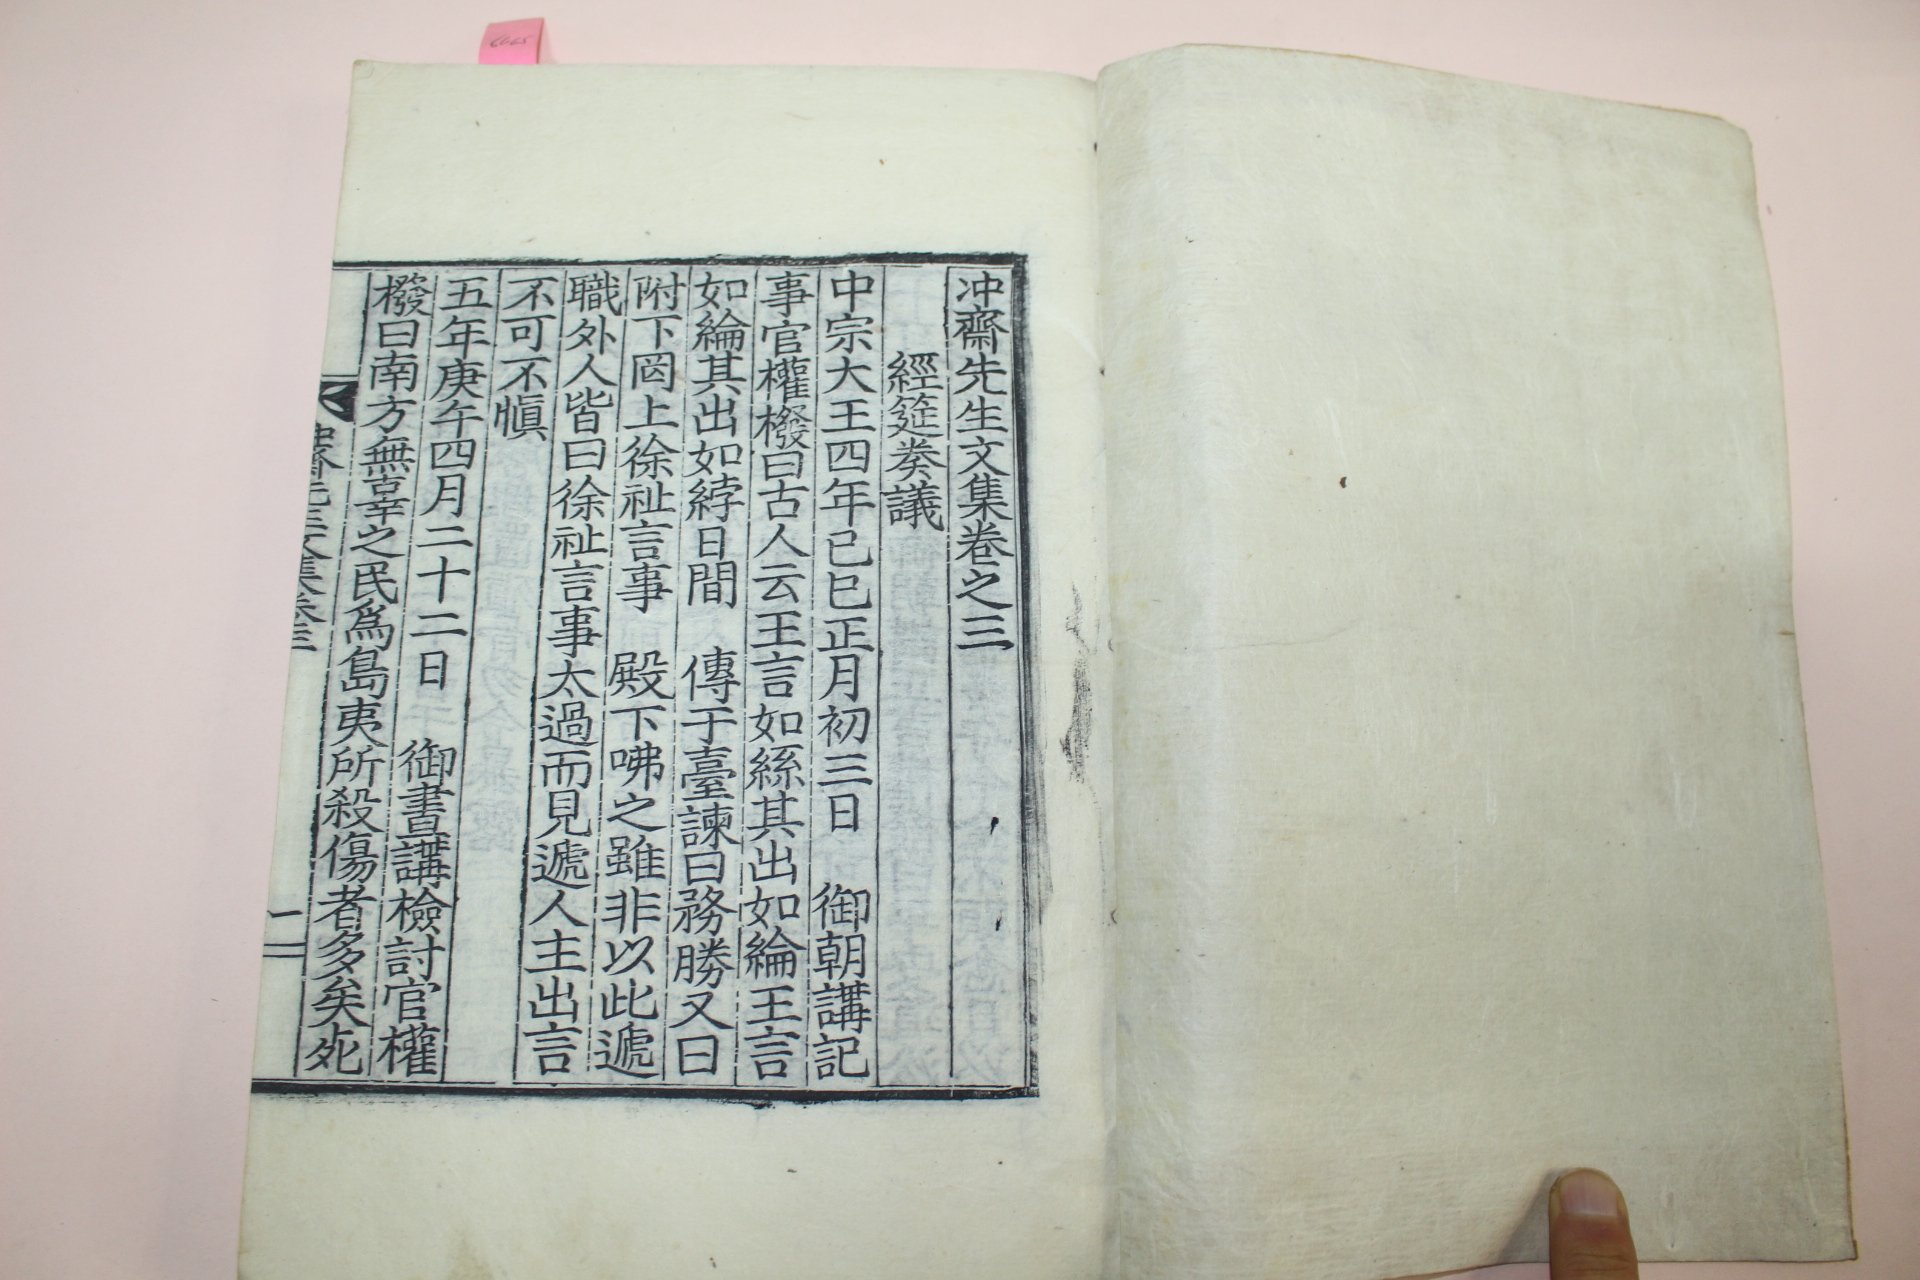 冲齋先生文集卷之三
經筵奏議
中宗大王四年己巳正月初三日 御朝講記
事官權橃曰古人云王言如絲其出如綸王言
如綸其出如綍日間 傳于臺諫曰務勝又曰
附下罔上徐祉言事 殿下咈之雖非以此遞
職外人皆曰徐祉言事太過而見遞人主出言
不可不愼
五年庚午四月二十二日 御晝講檢討官權
橃曰南方無辜之民爲島夷所殺傷者多矣死
冲齋先生文集卷三
一